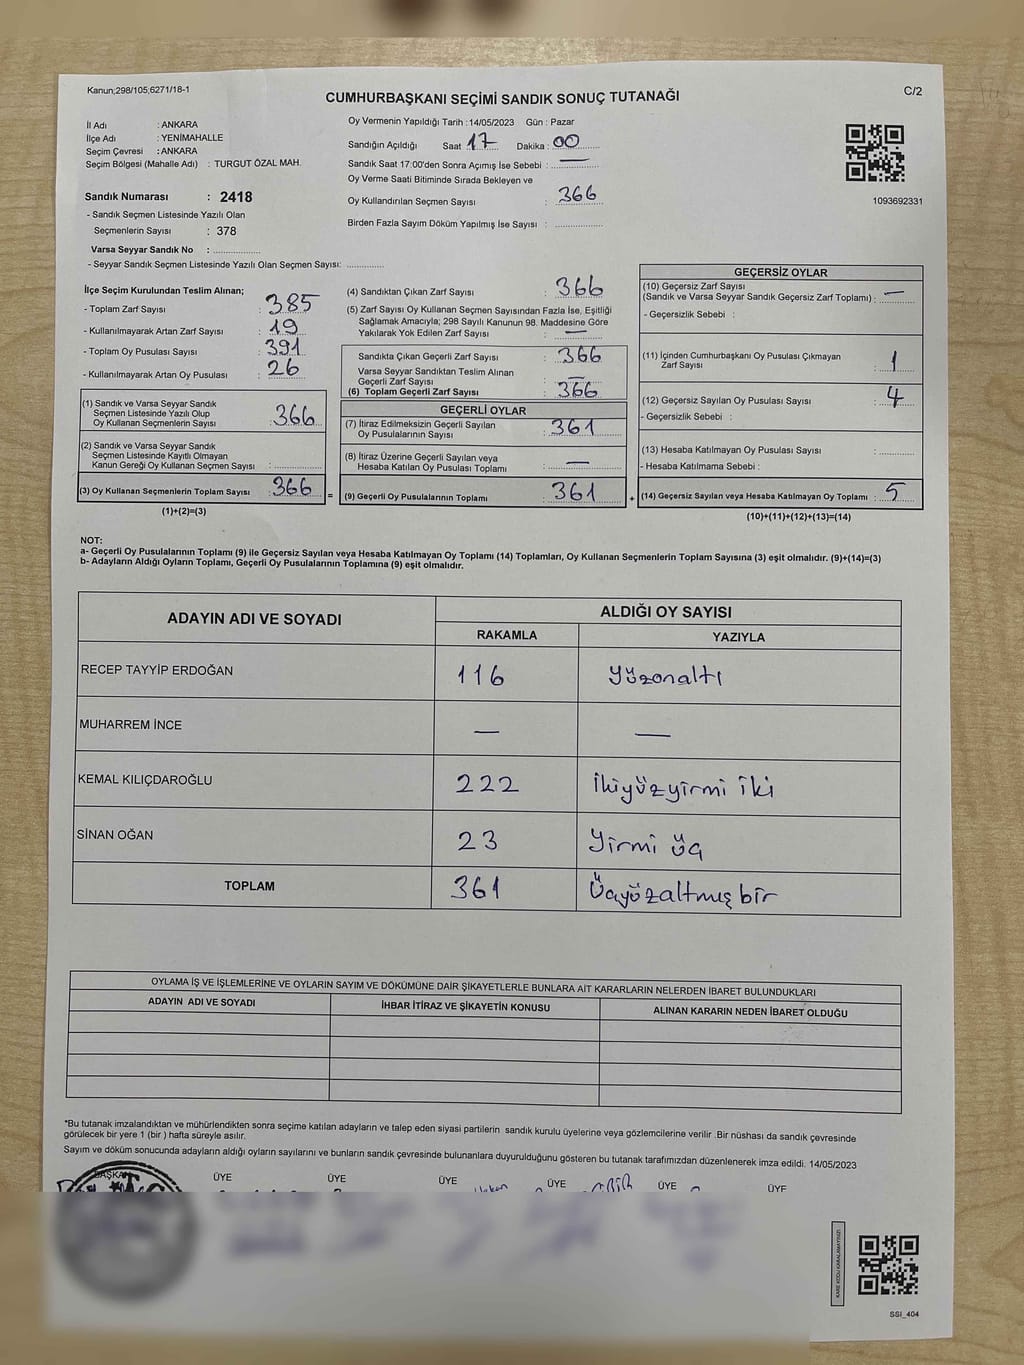 Kanun;298/105;6271/18-1
C/2
CUMHURBAŞKANI SEÇİMİ SANDIK SONUÇ TUTANAĞI
İl Adı : ANKARA
İlçe Adı : YENİMAHALLE
Seçim Çevresi : ANKARA
Seçim Bölgesi (Mahalle Adı) : TURGUT ÖZAL MAH.
Sandık Numarası : 2418
- Sandık Seçmen Listesinde Yazılı Olan
Seçmenlerin Sayısı : 378
Varsa Seyyar Sandık No : ..............
- Seyyar Sandık Seçmen Listesinde Yazılı Olan Seçmen Sayısı: ............
Oy Vermenin Yapıldığı Tarih :14/05/2023 Gün : Pazar
Sandığın Açıldığı Saat 17 Dakika : 00
Sandık Saat 17:00'den Sonra Açımış İse Sebebi : —
Oy Verme Saati Bitiminde Sırada Bekleyen ve
Oy Kullandırılan Seçmen Sayısı : 366
Birden Fazla Sayım Döküm Yapılmış İse Sayısı : ..............
1093692331
İlçe Seçim Kurulundan Teslim Alınan;
- Toplam Zarf Sayısı : 385
- Kullanılmayarak Artan Zarf Sayısı : 19
- Toplam Oy Pusulası Sayısı : 391
- Kullanılmayarak Artan Oy Pusulası : 26
(1) Sandık ve Varsa Seyyar Sandık
Seçmen Listesinde Yazılı Olup
Oy Kullanan Seçmenlerin Sayısı : 366
(2) Sandık ve Varsa Seyyar Sandık
Seçmen Listesinde Kayıtlı Olmayan
Kanun Gereği Oy Kullanan Seçmen Sayısı : ..............
(3) Oy Kullanan Seçmenlerin Toplam Sayısı : 366 =
(1)+(2)=(3)
(4) Sandıktan Çıkan Zarf Sayısı : 366
(5) Zarf Sayısı Oy Kullanan Seçmen Sayısından Fazla İse, Eşitliği
Sağlamak Amacıyla; 298 Sayılı Kanunun 98. Maddesine Göre
Yakılarak Yok Edilen Zarf Sayısı : —
Sandıkta Çıkan Geçerli Zarf Sayısı : 366
Varsa Seyyar Sandıktan Teslim Alınan
Geçerli Zarf Sayısı : —
(6) Toplam Geçerli Zarf Sayısı : 366
GEÇERLİ OYLAR
(7) İtiraz Edilmeksizin Geçerli Sayılan
Oy Pusulalarının Sayısı : 361
(8) İtiraz Üzerine Geçerli Sayılan veya
Hesaba Katılan Oy Pusulası Toplamı : —
(9) Geçerli Oy Pusulalarının Toplamı : 361 +
GEÇERSİZ OYLAR
(10) Geçersiz Zarf Sayısı
(Sandık ve Varsa Seyyar Sandık Geçersiz Zarf Toplamı) : —
- Geçersizlik Sebebi :
(11) İçinden Cumhurbaşkanı Oy Pusulası Çıkmayan
Zarf Sayısı : 1
(12) Geçersiz Sayılan Oy Pusulası Sayısı : 4
- Geçersizlik Sebebi :
(13) Hesaba Katılmayan Oy Pusulası Sayısı : ............
- Hesaba Katılmama Sebebi :
(14) Geçersiz Sayılan veya Hesaba Katılmayan Oy Toplamı : 5
(10)+(11)+(12)+(13)=(14)
NOT:
a- Geçerli Oy Pusulalarının Toplamı (9) ile Geçersiz Sayılan veya Hesaba Katılmayan Oy Toplamı (14) Toplamları, Oy Kullanan Seçmenlerin Toplam Sayısına (3) eşit olmalıdır. (9)+(14)=(3)
b- Adayların Aldığı Oyların Toplamı, Geçerli Oy Pusulalarının Toplamına (9) eşit olmalıdır.
ADAYIN ADI VE SOYADI ALDIĞI OY SAYISI
RAKAMLA YAZIYLA
RECEP TAYYİP ERDOĞAN 116 yüzonaltı
MUHARREM İNCE — —
KEMAL KILIÇDAROĞLU 222 İkiyüzyirmi iki
SİNAN OĞAN 23 Yirmi üç
TOPLAM 361 Üçyüzaltmış bir
OYLAMA İŞ VE İŞLEMLERİNE VE OYLARIN SAYIM VE DÖKÜMÜNE DAİR ŞİKAYETLERLE BUNLARA AİT KARARLARIN NELERDEN İBARET BULUNDUKLARI
ADAYIN ADI VE SOYADI İHBAR İTİRAZ VE ŞİKAYETİN KONUSU ALINAN KARARIN NEDEN İBARET OLDUĞU
*Bu tutanak imzalandıktan ve mühürlendikten sonra seçime katılan adayların ve talep eden siyasi partilerin sandık kurulu üyelerine veya gözlemcilerine verilir .Bir nüshası da sandık çevresinde
görülecek bir yere 1 (bir ) hafta süreyle asılır.
Sayım ve döküm sonucunda adayların aldığı oyların sayılarını ve bunların sandık çevresinde bulunanlara duyurulduğunu gösteren bu tutanak tarafımızdan düzenlenerek imza edildi. 14/05/2023
BAŞKAN ÜYE ÜYE ÜYE ÜYE ÜYE ÜYE
KARE KODU KARALAMAYINIZ!
SSI_404